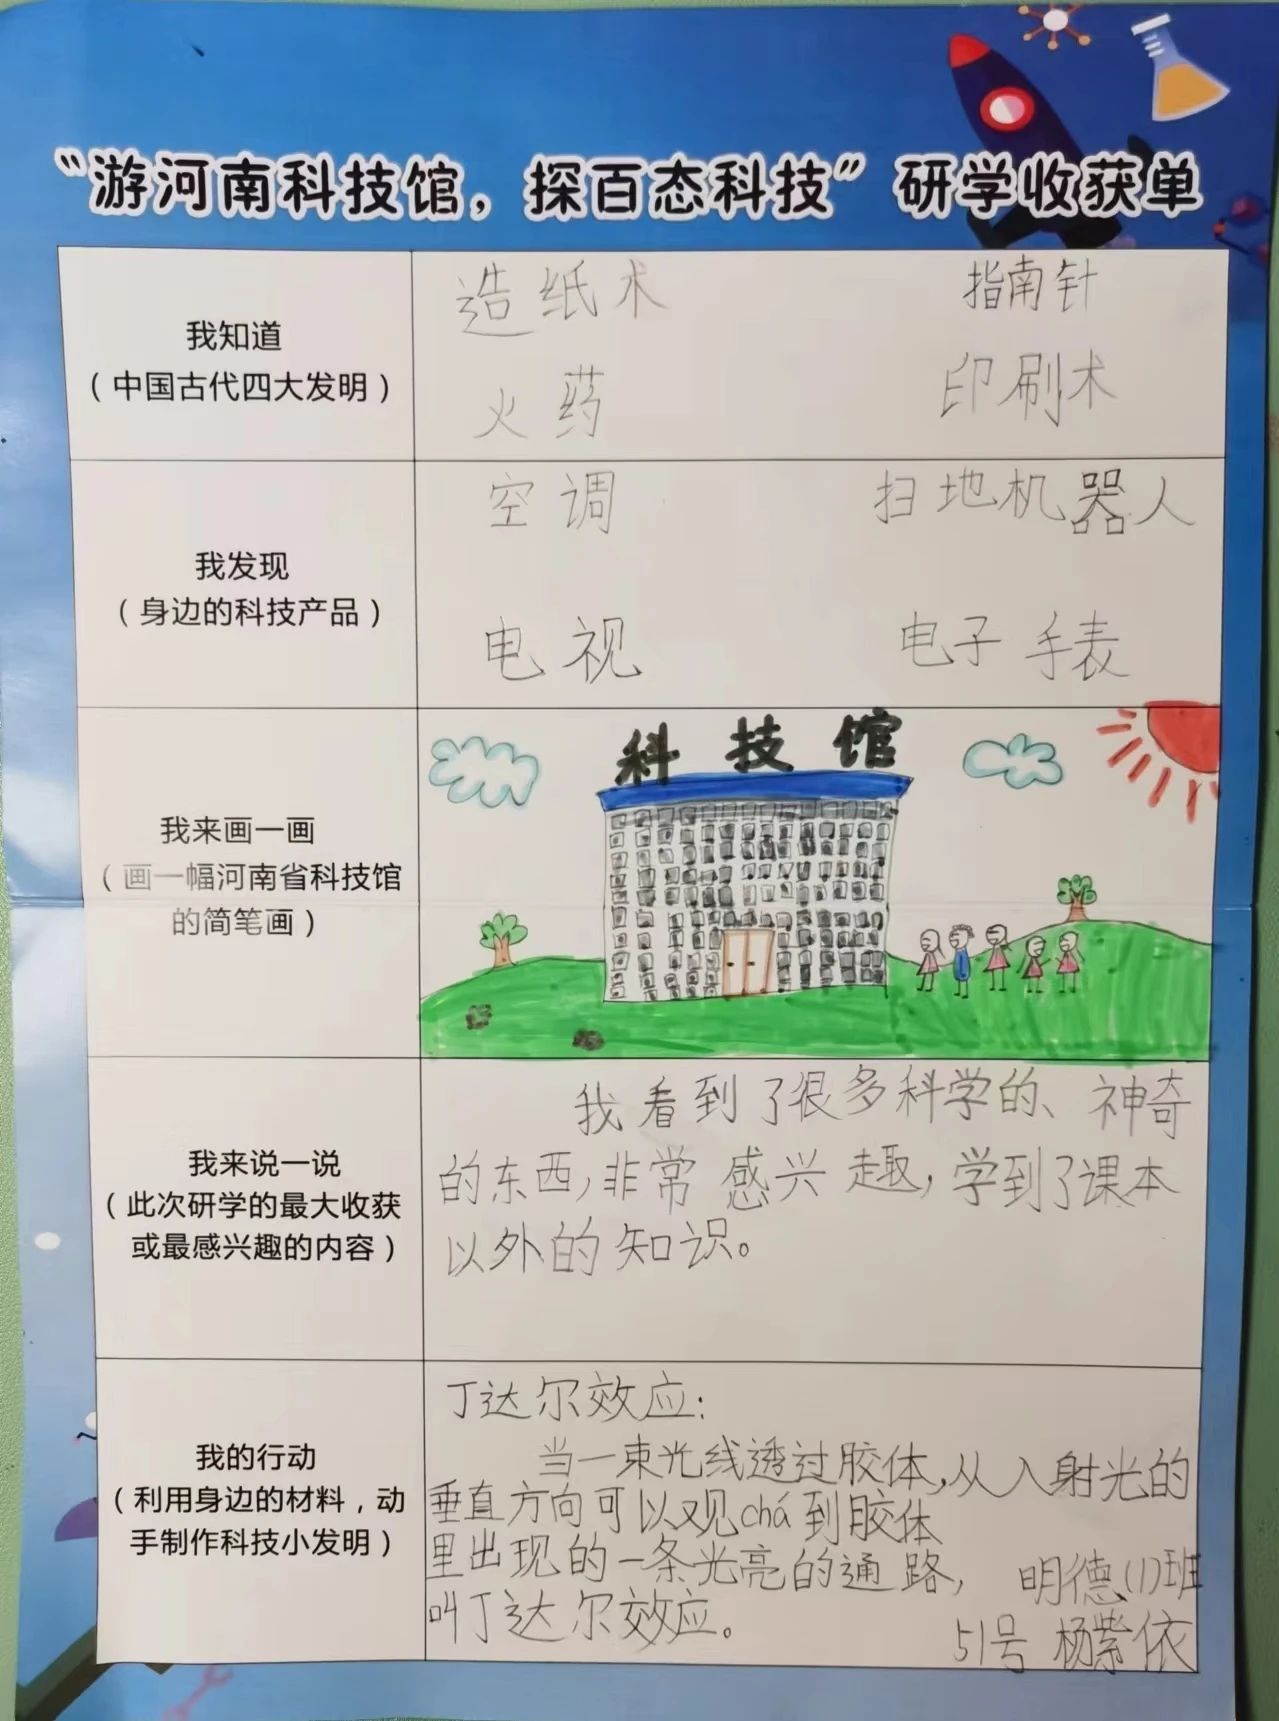 “游河南科技馆，探百态科技”研学收获单
我知道
（中国古代四大发明）
造纸术 指南针
火药 印刷术
我发现
（身边的科技产品）
空调 扫地机器人
电视 电子手表
我来画一画
（画一幅河南省科技馆
的简笔画）
科技馆
我来说一说
（此次研学的最大收获
或最感兴趣的内容）
我看到了很多科学的、神奇
的东西，非常感兴趣，学到了课本
以外的知识。
我的行动
（利用身边的材料，动
手制作科技小发明）
丁达尔效应：
当一束光线透过胶体，从入射光的
垂直方向可以观chá到胶体
里出现的一条光亮的通路，
叫丁达尔效应。
明德(1)班
51号 杨紫依